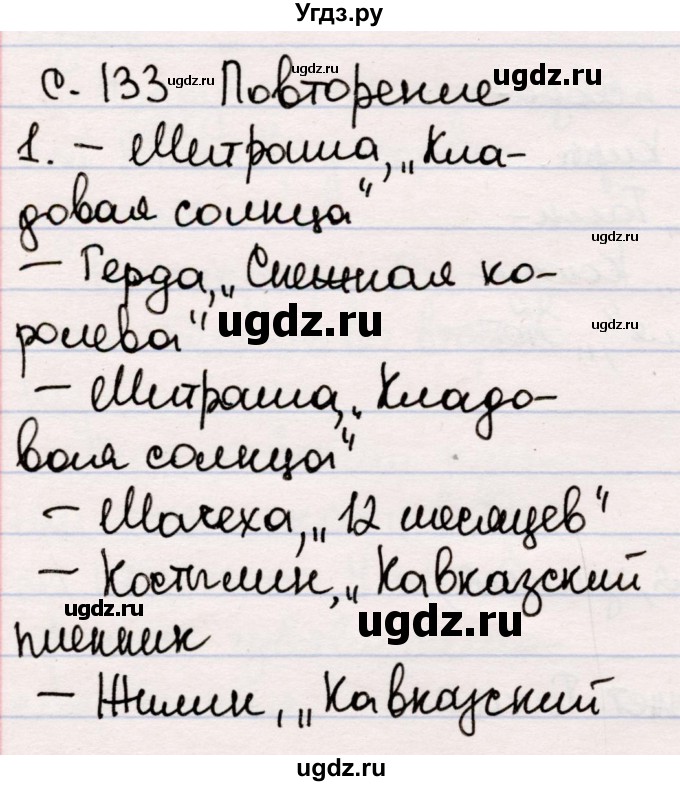 Угдз.ру
с. 133 Повторение
ugdz.ru ugdz.ru
1. – Митраша, „Кла-
довая солнца"
ugdz.ru
– Герда, „Снежная ко-
ролева"
ugdz.ru ugdz.ru
– Митраша, „Кладо-
вая солнцы"
– Мачеха, „12 месяцев"
– Костылин, „Кавказский
ugdz.ru
пленник
ugdz.ru
– Жилин, „Кавказский
ugdz.ru